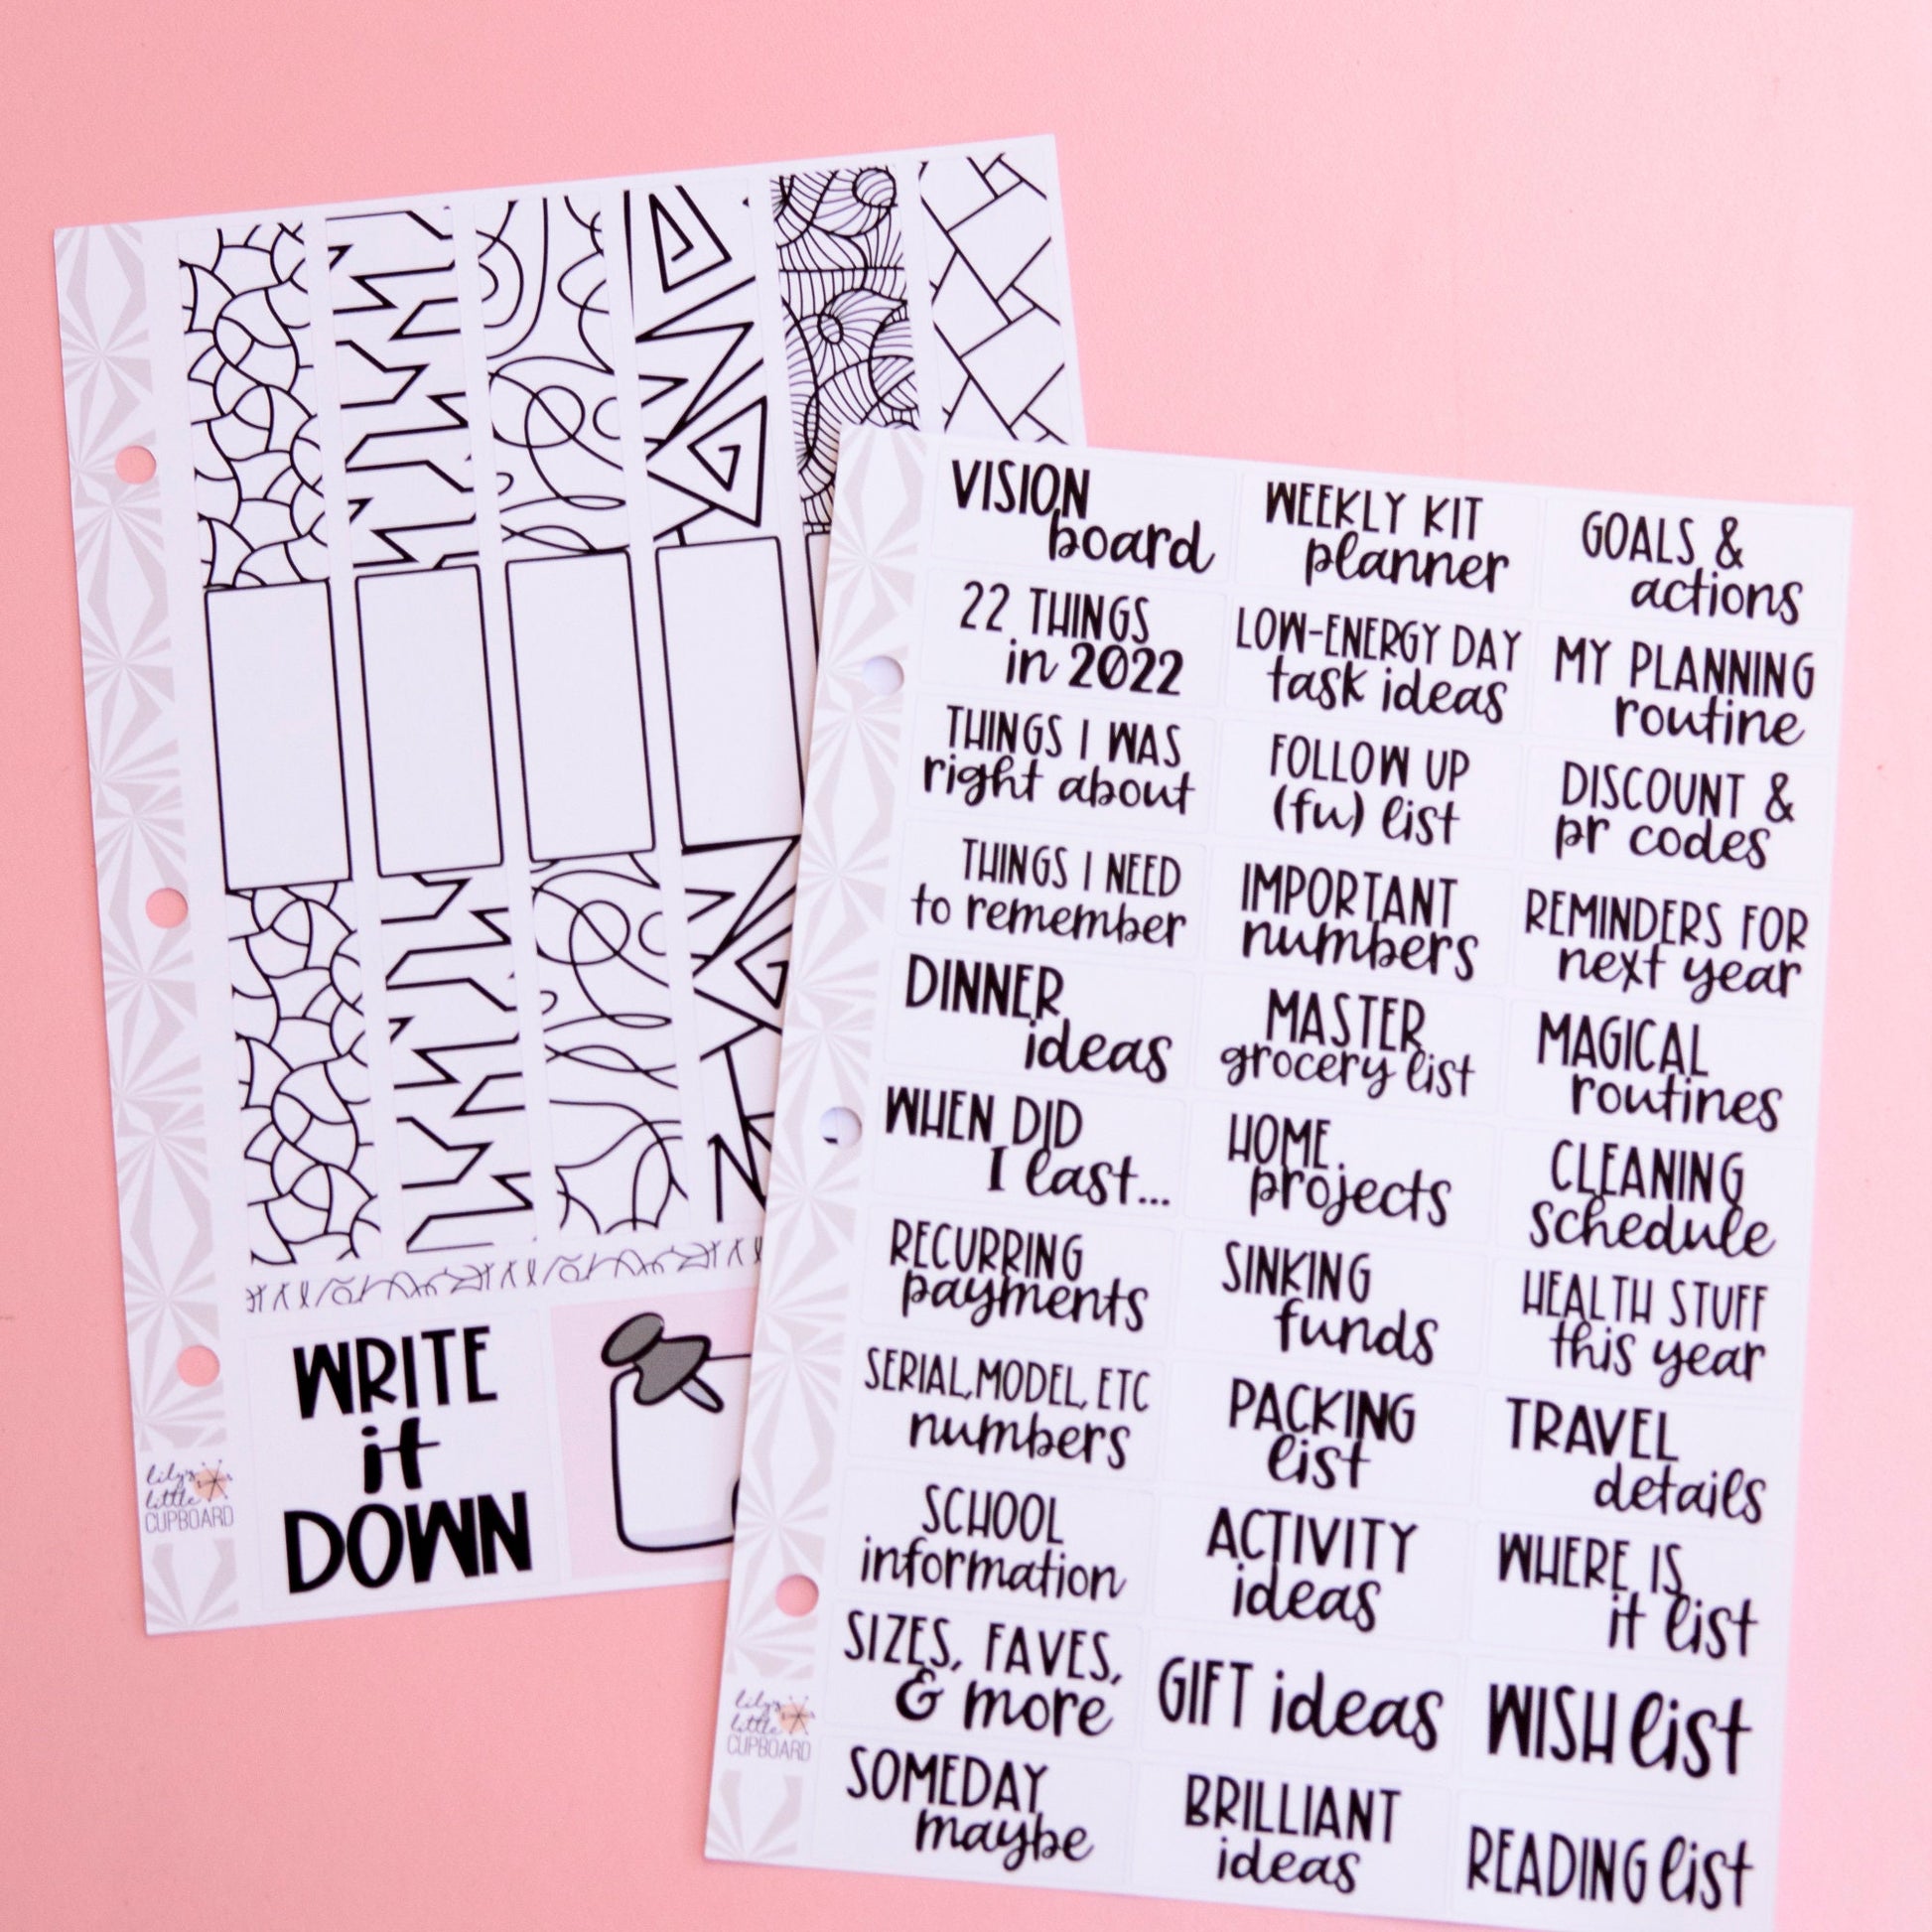 WRITE
it
DOWN
lily's
little
CUPBOARD
VISION
board
WEEKLY KIT
planner
GOALS &
actions
22 THINGS
in 2022
LOW-ENERGY DAY
task ideas
MY PLANNING
routine
THINGS I WAS
right about
FOLLOW UP
(fu) list
DISCOUNT &
pr codes
THINGS I NEED
to remember
IMPORTANT
numbers
REMINDERS FOR
next year
DINNER
ideas
MASTER
grocery list
MAGICAL
routines
WHEN DID
I last...
HOME
projects
CLEANING
schedule
RECURRING
payments
SINKING
funds
HEALTH STUFF
this year
SERIAL, MODEL, ETC
numbers
PACKING
list
TRAVEL
details
SCHOOL
information
ACTIVITY
ideas
WHERE IS
it list
SIZES, FAVES,
& more
GIFT ideas
WISH list
SOMEDAY
maybe
BRILLIANT
ideas
READING list
lily's
little
CUPBOARD